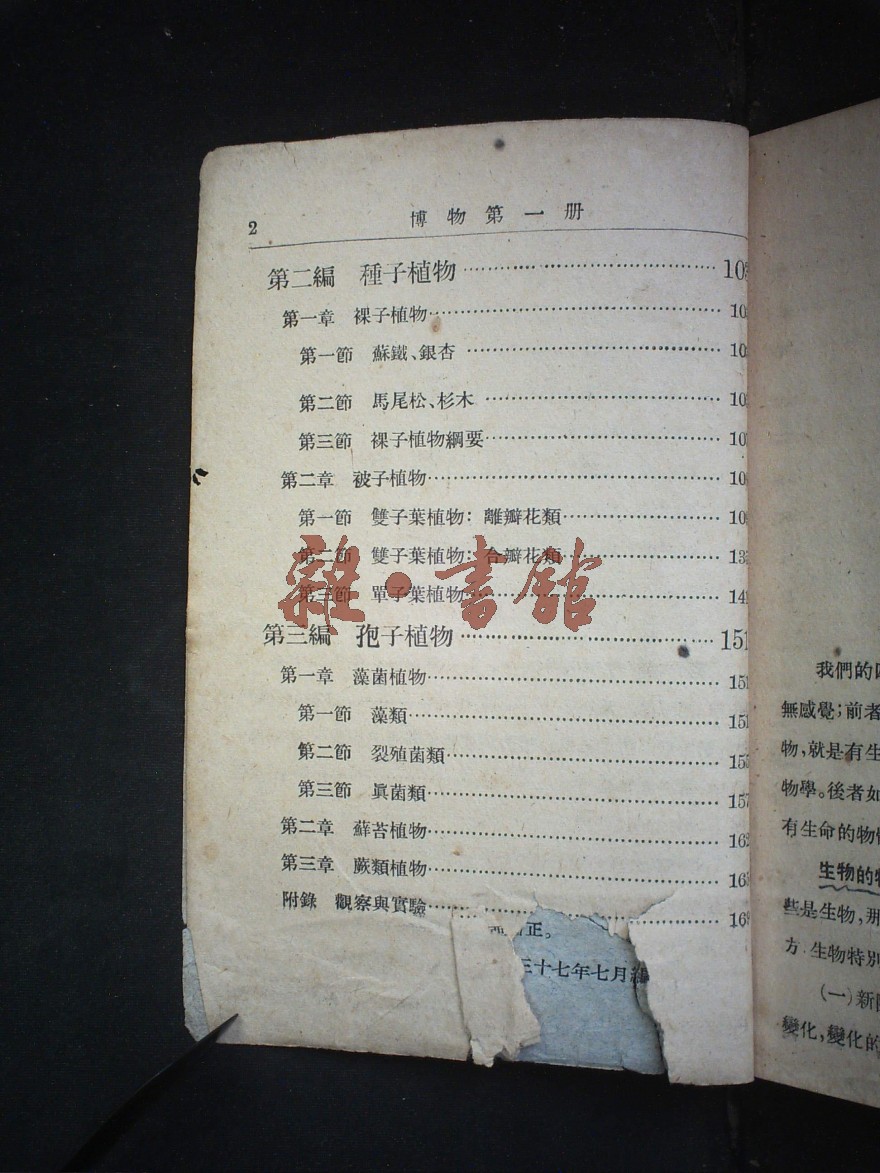 2
博物第一册
第二編 種子植物 10
第一章 裸子植物 10
第一節 蘇鐵、銀杏 10
第二節 馬尾松、杉木 10
第三節 裸子植物綱要 10
第二章 被子植物 10
第一節 雙子葉植物：離瓣花類 10
第二節 雙子葉植物：合瓣花類 13
第三節 單子葉植物 14
第三編 孢子植物 151
第一章 藻菌植物 151
第一節 藻類 151
第二節 裂殖菌類 155
第三節 眞菌類 157
第二章 蘚苔植物 162
第三章 蕨類植物 16
附錄 觀察與實驗 168
正。
三十七年七月
雜·書館
我們的
無感覺；前者
物，就是有生
物學。後者如
有生命的物
生物的
些是生物，那
方 生物特別
（一）新
變化，變化的